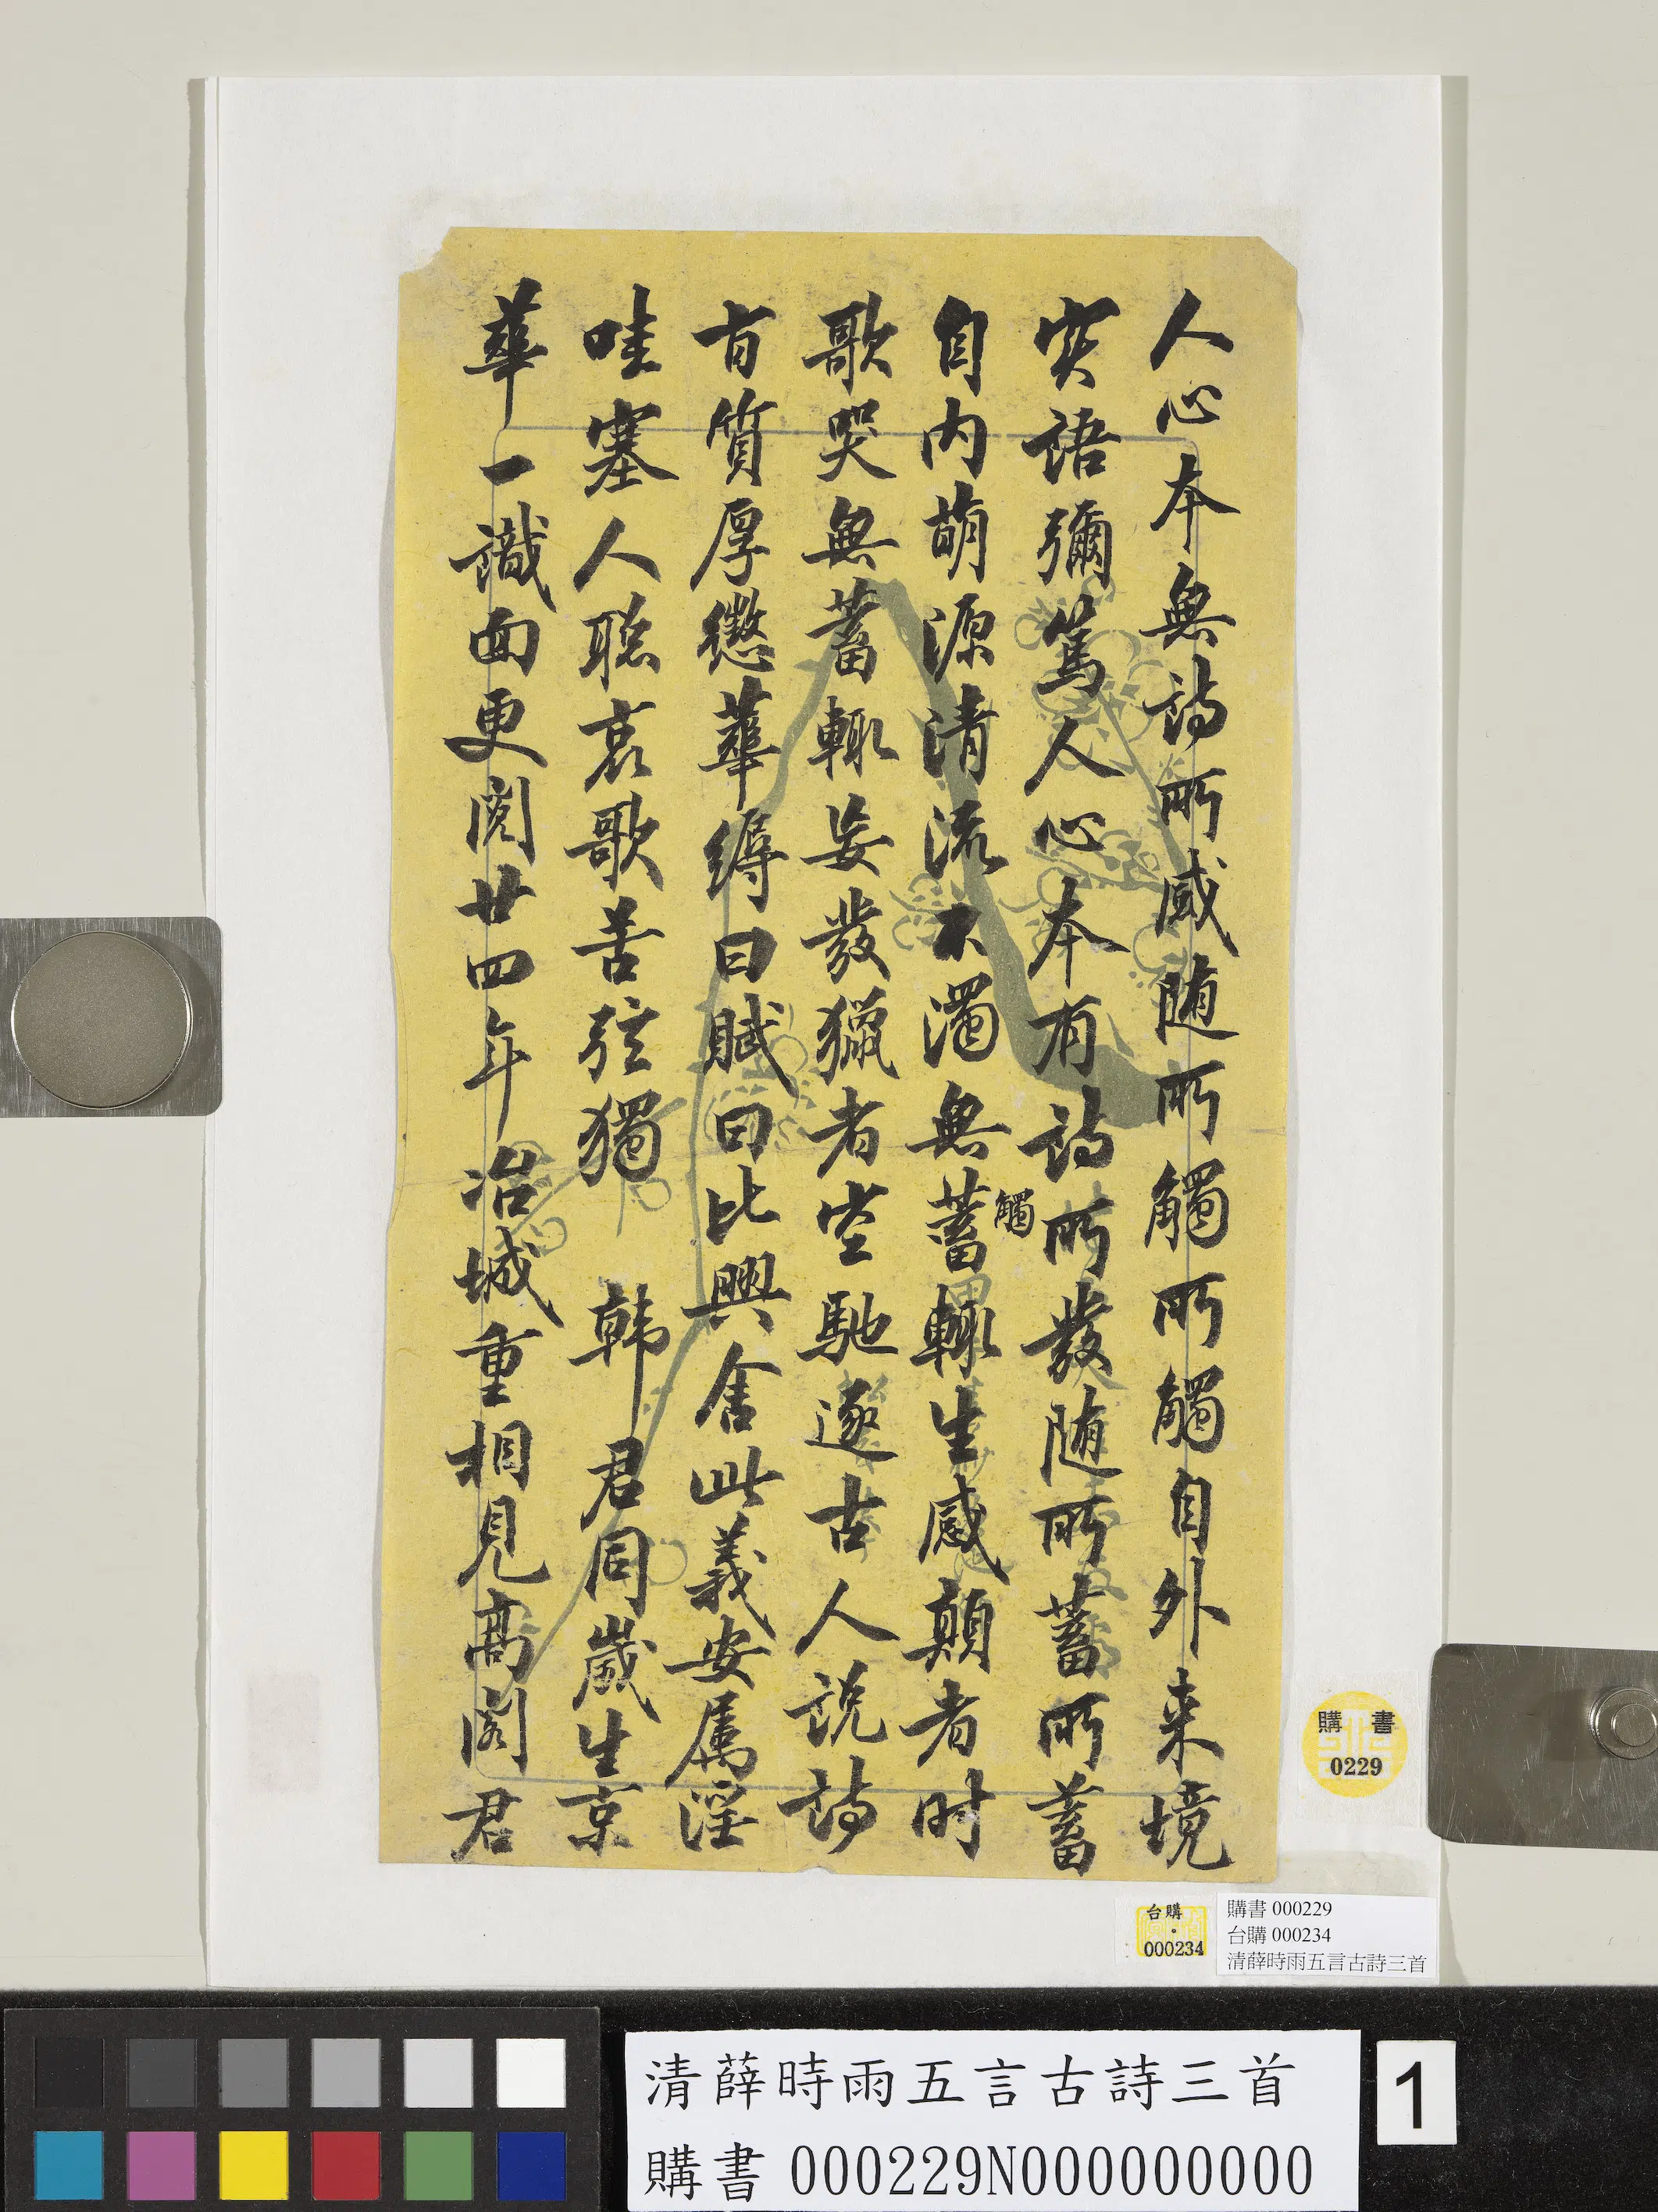 人心本無詩所感随所觸所觸自外来境
实語彌篤人心本有詩所發随所蓄所蓄
自内萌源清流不濁無蓄輙生感顛者时
觸
歌哭無蓄輙妄發獵者空馳逐古人说詩
旨質厚懲華縟曰賦曰比興舍此義安屬淫
哇塞人聪哀歌苦弦獨 韩君同歲生京
華一識面更閱廿四年冶城重相見高閣君
購書
0229
台購
000234
購書 000229
台購 000234
清薛時雨五言古詩三首
清薛時雨五言古詩三首
購書 000229N000000000
1